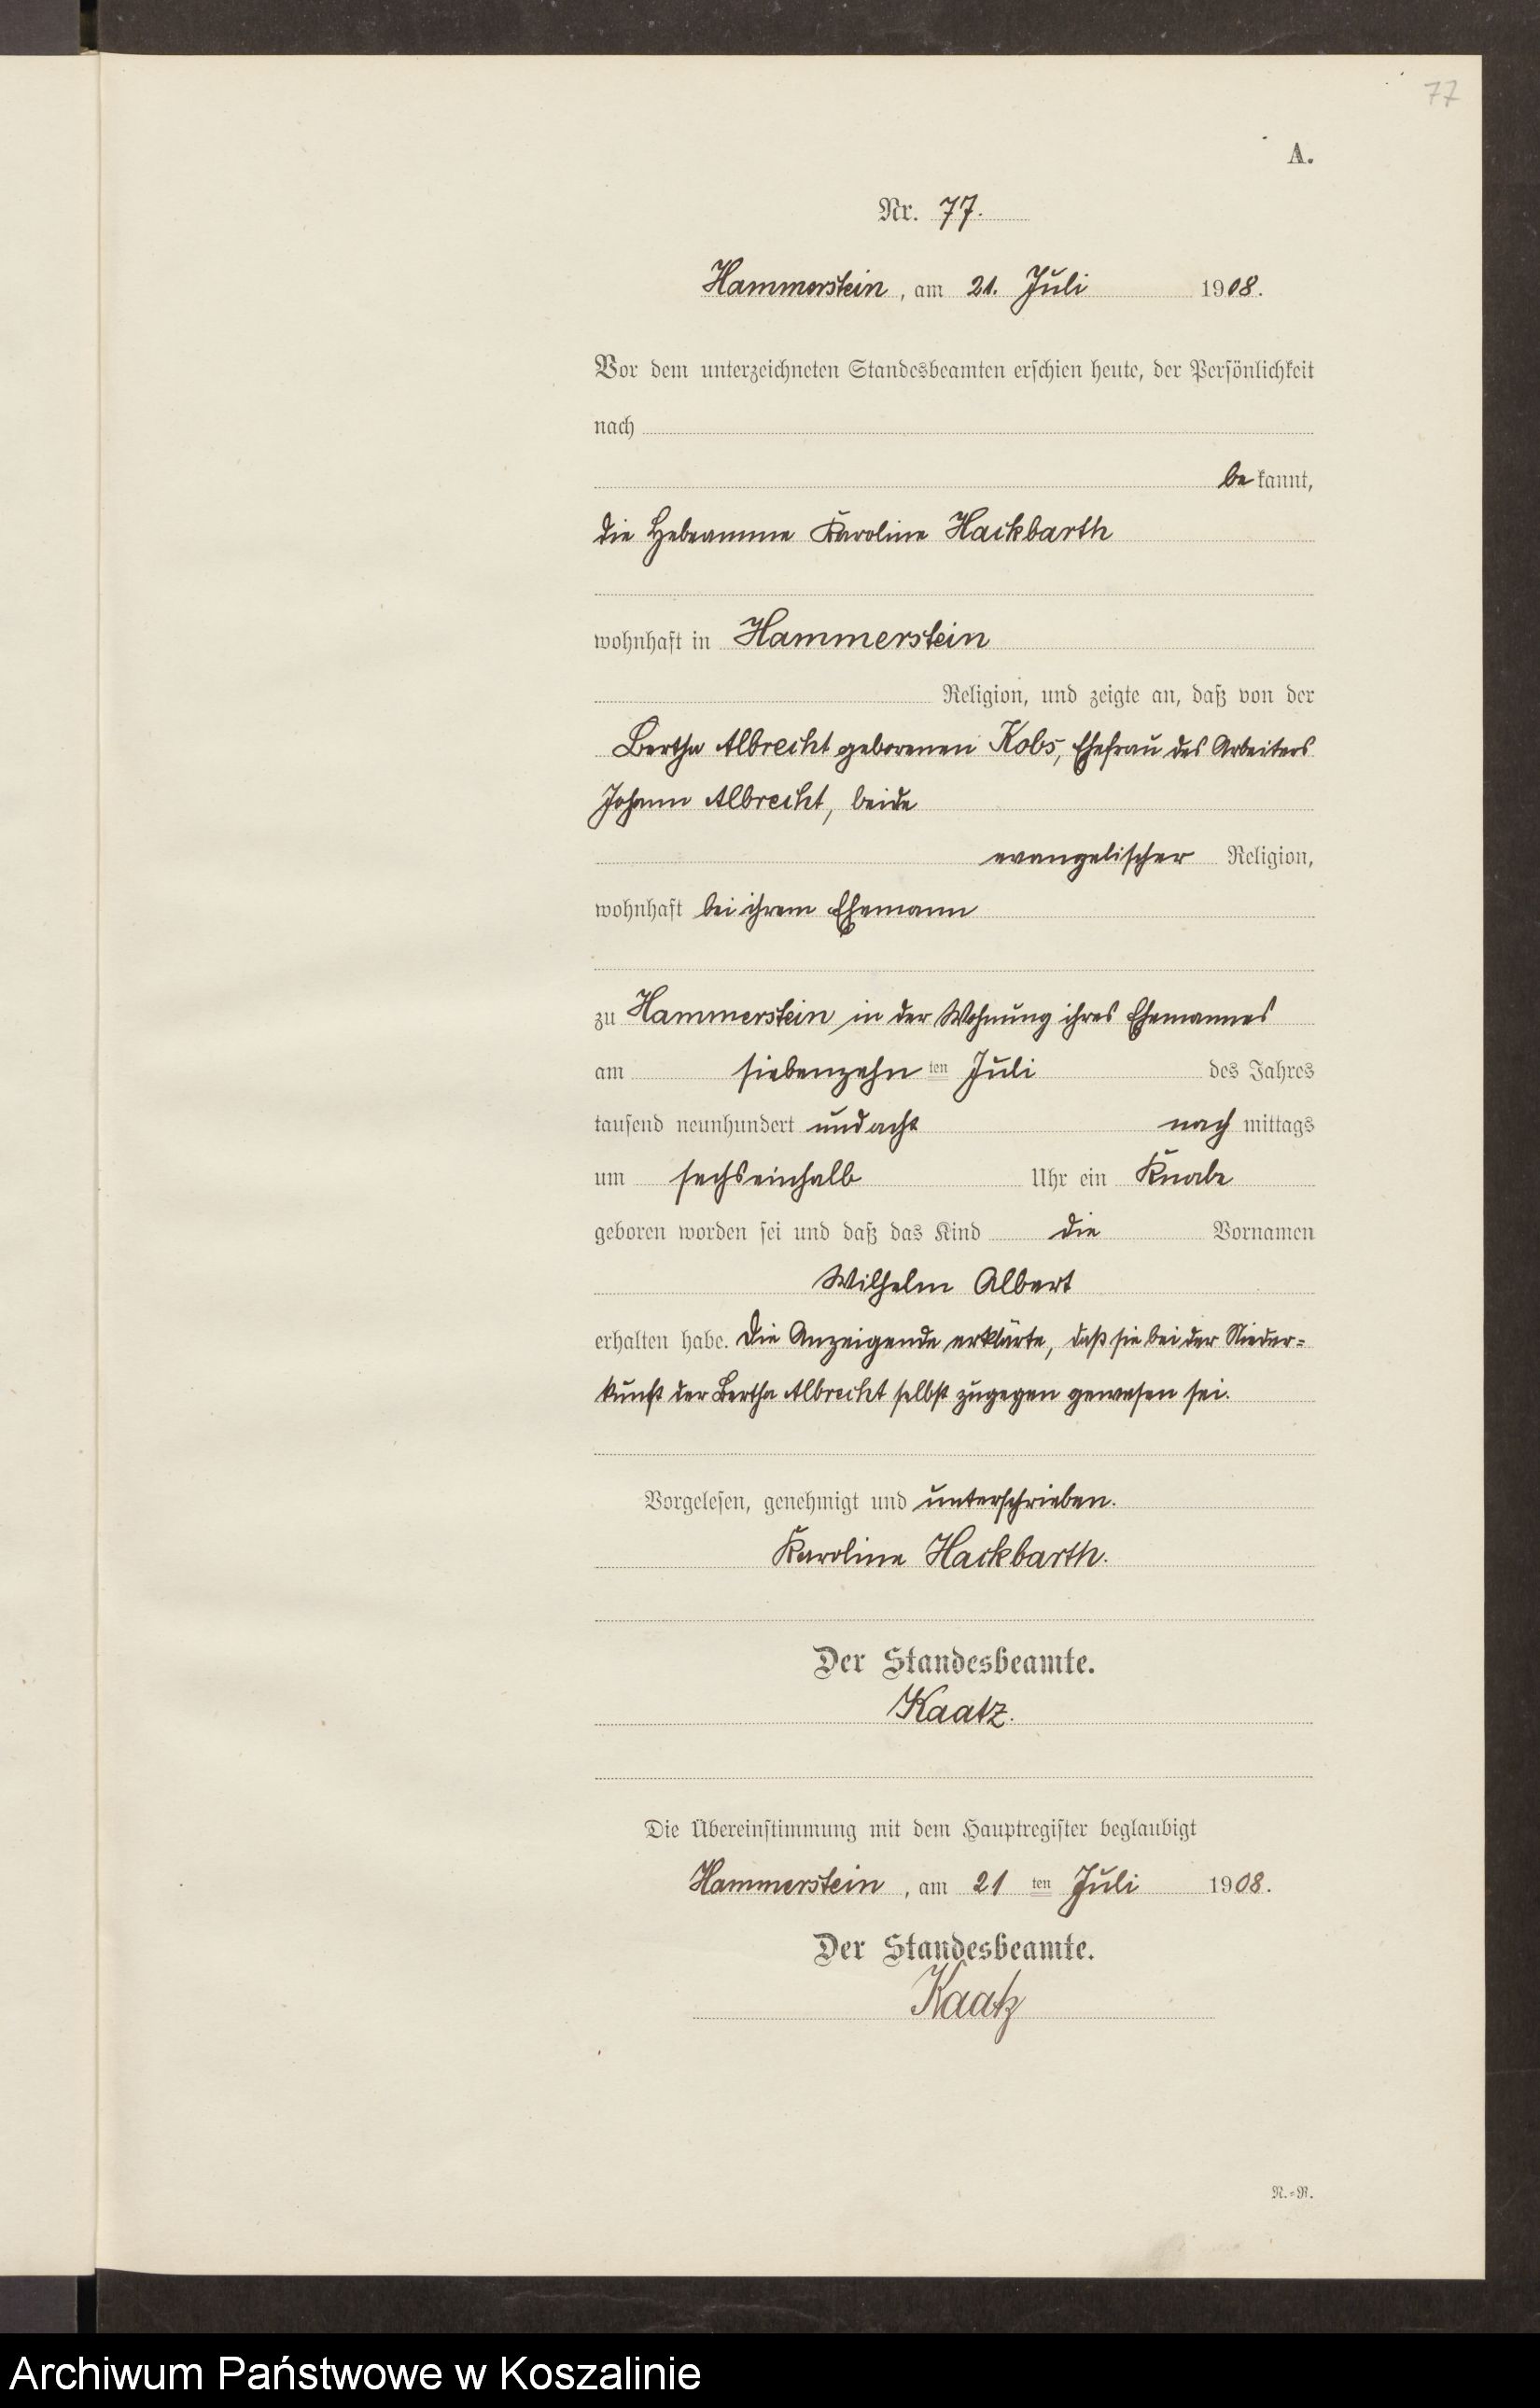 77
A.
Nr. 77.
Hammerstein, am 21. Juli 1908.
Vor dem unterzeichneten Standesbeamten erschien heute, der Persönlichkeit
nach
bekannt,
die Hebeamme Karoline Hackbarth
wohnhaft in Hammerstein
Religion, und zeigte an, daß von der
Bertha Albrecht geborenen Kobs, Ehefrau des Arbeiters
Johann Albrecht, beide
evangelischer Religion,
wohnhaft bei ihrem Ehemann
zu Hammerstein in der Wohnung ihres Ehemannes
am siebenzehn ten Juli des Jahres
tausend neunhundert und acht nach mittags
um sechseinhalb Uhr ein Knabe
geboren worden sei und daß das Kind die Vornamen
Wilhelm Albert
erhalten habe. Die Anzeigende erklärte, daß sie bei der Nieder-
kunft der Bertha Albrecht selbst zugegen gewesen sei.
Vorgelesen, genehmigt und unterschrieben.
Karoline Hackbarth.
Der Standesbeamte.
Kaatz.
Die Übereinstimmung mit dem Hauptregister beglaubigt
Hammerstein, am 21 ten Juli 1908.
Der Standesbeamte.
Kaatz
N.-R.
Archiwum Państwowe w Koszalinie